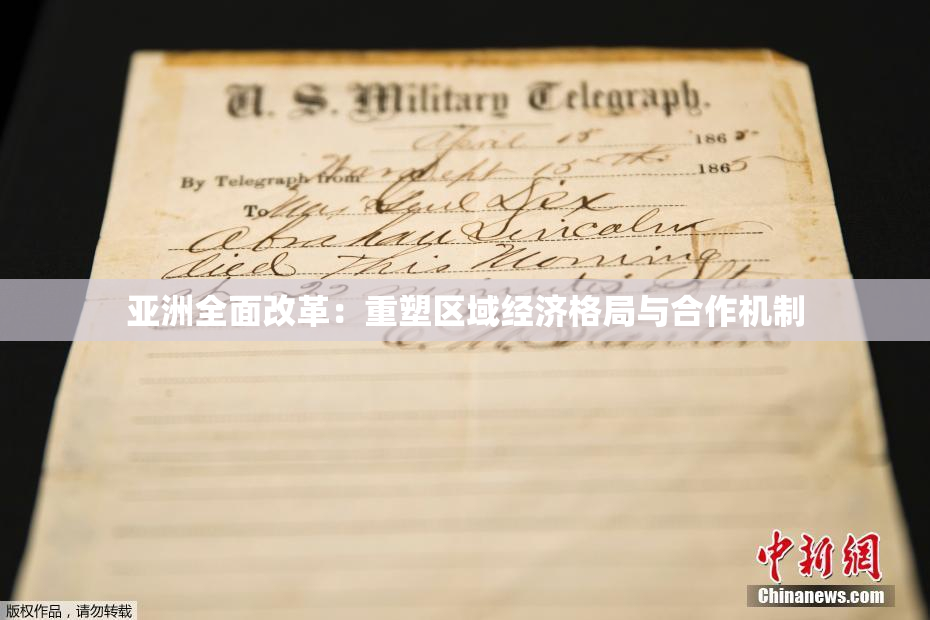 U. S. Military Telegraph.
April 15 1865
By Telegraph from War Dept 15 1865
To Maj Genl Dix
Abraham Lincoln
died This Morning
at 22 minutes after
亚洲全面改革：重塑区域经济格局与合作机制
E. M. Stanton
中新網
Chinanews.com
版权作品，请勿转载